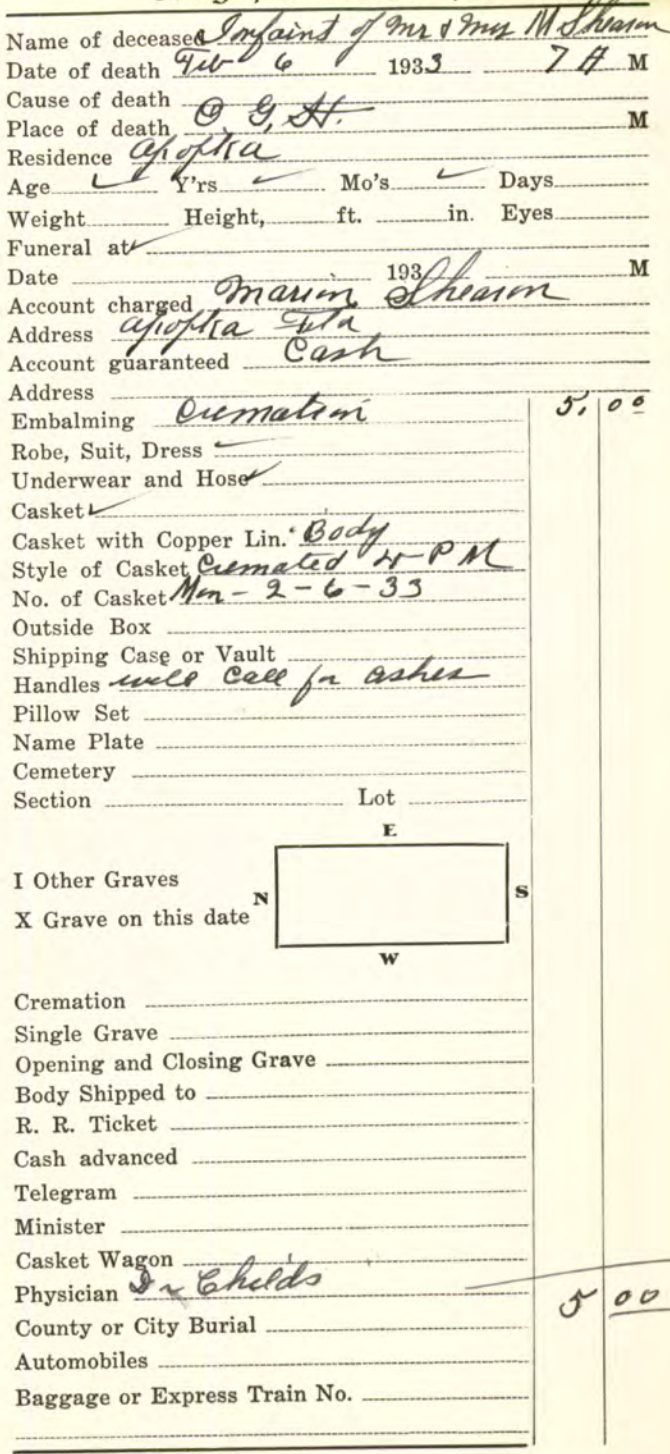 Name of deceased Infaint of Mr & Mrs M Shearon
Date of death Feb 6 1933 7 A M
Cause of death
Place of death O. G. H. M
Residence Apopka
Age Y'rs Mo's Days
Weight Height, ft. in. Eyes
Funeral at
Date 193 M
Account charged Marion Shearon
Address Apopka Fla
Account guaranteed Cash
Address
Embalming Cremation 5.00
Robe, Suit, Dress
Underwear and Hose
Casket
Casket with Copper Lin. Body
Style of Casket Cremated 4 - P M
No. of Casket Mon - 2 - 6 - 33
Outside Box
Shipping Case or Vault
Handles will call for ashes
Pillow Set
Name Plate
Cemetery
Section Lot
E
I Other Graves
N S
X Grave on this date
W
Cremation
Single Grave
Opening and Closing Grave
Body Shipped to
R. R. Ticket
Cash advanced
Telegram
Minister
Casket Wagon
Physician Dr Childs 5 00
County or City Burial
Automobiles
Baggage or Express Train No.